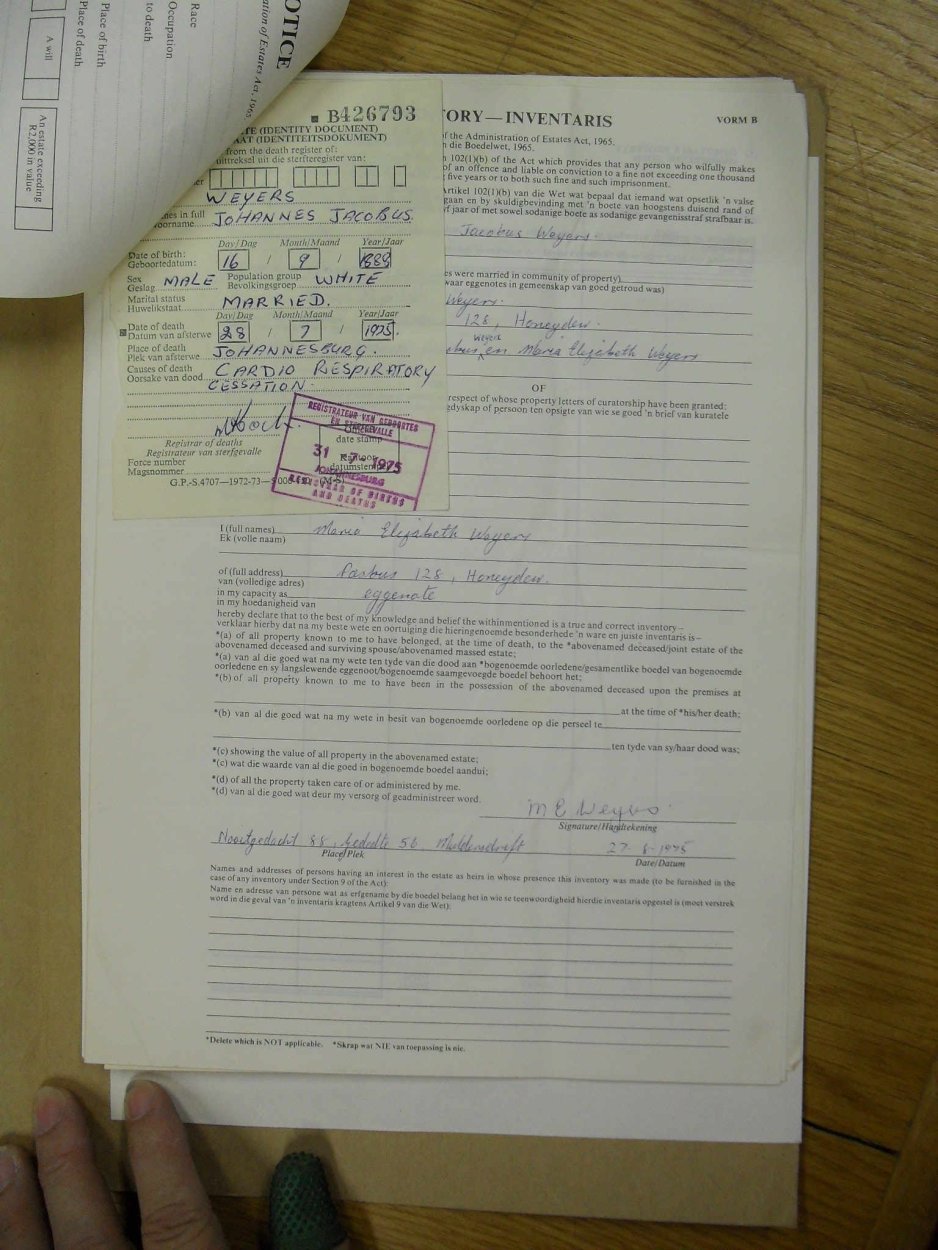 OTICE
ation of Estates Act, 1965
Race
Occupation
to death
Place of birth
Place of death
A will
An estate exceeding
R2,000 in value
B426793
TE (IDENTITY DOCUMENT)
AAT (IDENTITEITSDOKUMENT)
from the death register of:
uittreksel uit die sterfteregister van:
WEYERS
es in full
voorname JOHANNES JACOBUS
Day/Dag Month/Maand Year/Jaar
Date of birth:
Geboortedatum: 16 / 9 / 1889
Sex
Geslag MALE Population group
Bevolkingsgroep WHITE
Marital status
Huwelikstaat MARRIED.
Day/Dag Month/Maand Year/Jaar
Date of death
Datum van afsterwe 28 / 7 / 1975.
Place of death
Plek van afsterwe JOHANNESBURG.
Causes of death
Oorsake van dood CARDIO RESPIRATORY
CESSATION.
Registrar of deaths
Registrateur van sterfgevalle
Force number
Magsnommer
date stamp
datumstempel
G.P.-S.4707—1972-73—
REGISTRATEUR VAN GEBOORTES
EN STERFGEVALLE
31 -7- 1975
JOHANNESBURG
REGISTRAR OF BIRTHS
AND DEATHS
TORY—INVENTARIS
VORM B
of the Administration of Estates Act, 1965.
n die Boedelwet, 1965.
n 102(1)(b) of the Act which provides that any person who wilfully makes
of an offence and liable on conviction to a fine not exceeding one thousand
five years or to both such fine and such imprisonment.
Artikel 102(1)(b) van die Wet wat bepaal dat iemand wat opsetlik 'n valse
gaan en by skuldigbevinding met 'n boete van hoogstens duisend rand of
yf jaar of met sowel sodanige boete as sodanige gevangenisstraf strafbaar is.
Jacobus Weyers
es were married in community of property)
waar eggenotes in gemeenskap van goed getroud was)
Weyers.
128, Honeydew.
Weyers
obus en Maria Elizabeth Weyers
OF
respect of whose property letters of curatorship have been granted;
gdyskap of persoon ten opsigte van wie se goed 'n brief van kuratele
I (full names)
Ek (volle naam) Maria Elizabeth Weyers
of (full address)
van (volledige adres) Posbus 128, Honeydew.
in my capacity as
in my hoedanigheid van eggenote
hereby declare that to the best of my knowledge and belief the withinmentioned is a true and correct inventory–
verklaar hierby dat na my beste wete en oortuiging die hieringenoemde besonderhede 'n ware en juiste inventaris is–
*(a) of all property known to me to have belonged, at the time of death, to the *abovenamed deceased/joint estate of the
abovenamed deceased and surviving spouse/abovenamed massed estate;
*(a) van al die goed wat na my wete ten tyde van die dood aan *bogenoemde oorledene/gesamentlike boedel van bogenoemde
oorledene en sy langslewende eggenoot/bogenoemde saamgevoegde boedel behoort het;
*(b) of all property known to me to have been in the possession of the abovenamed deceased upon the premises at
at the time of *his/her death;
*(b) van al die goed wat na my wete in besit van bogenoemde oorledene op die perseel te
ten tyde van sy/haar dood was;
*(c) showing the value of all property in the abovenamed estate;
*(c) wat die waarde van al die goed in bogenoemde boedel aandui;
*(d) of all the property taken care of or administered by me.
*(d) van al die goed wat deur my versorg of geadministreer word.
M E Weyers
Signature/Handtekening
Nooitgedacht 88, Gedeelte 56, Muldersdrift
27-8-1975
Place/Plek
Date/Datum
Names and addresses of persons having an interest in the estate as heirs in whose presence this inventory was made (to be furnished in the
case of any inventory under Section 9 of the Act):
Name en adresse van persone wat as erfgename by die boedel belang het in wie se teenwoordigheid hierdie inventaris opgestel is (moet verstrek
word in die geval van 'n inventaris kragtens Artikel 9 van die Wet):
*Delete which is NOT applicable. *Skrap wat NIE van toepassing is nie.